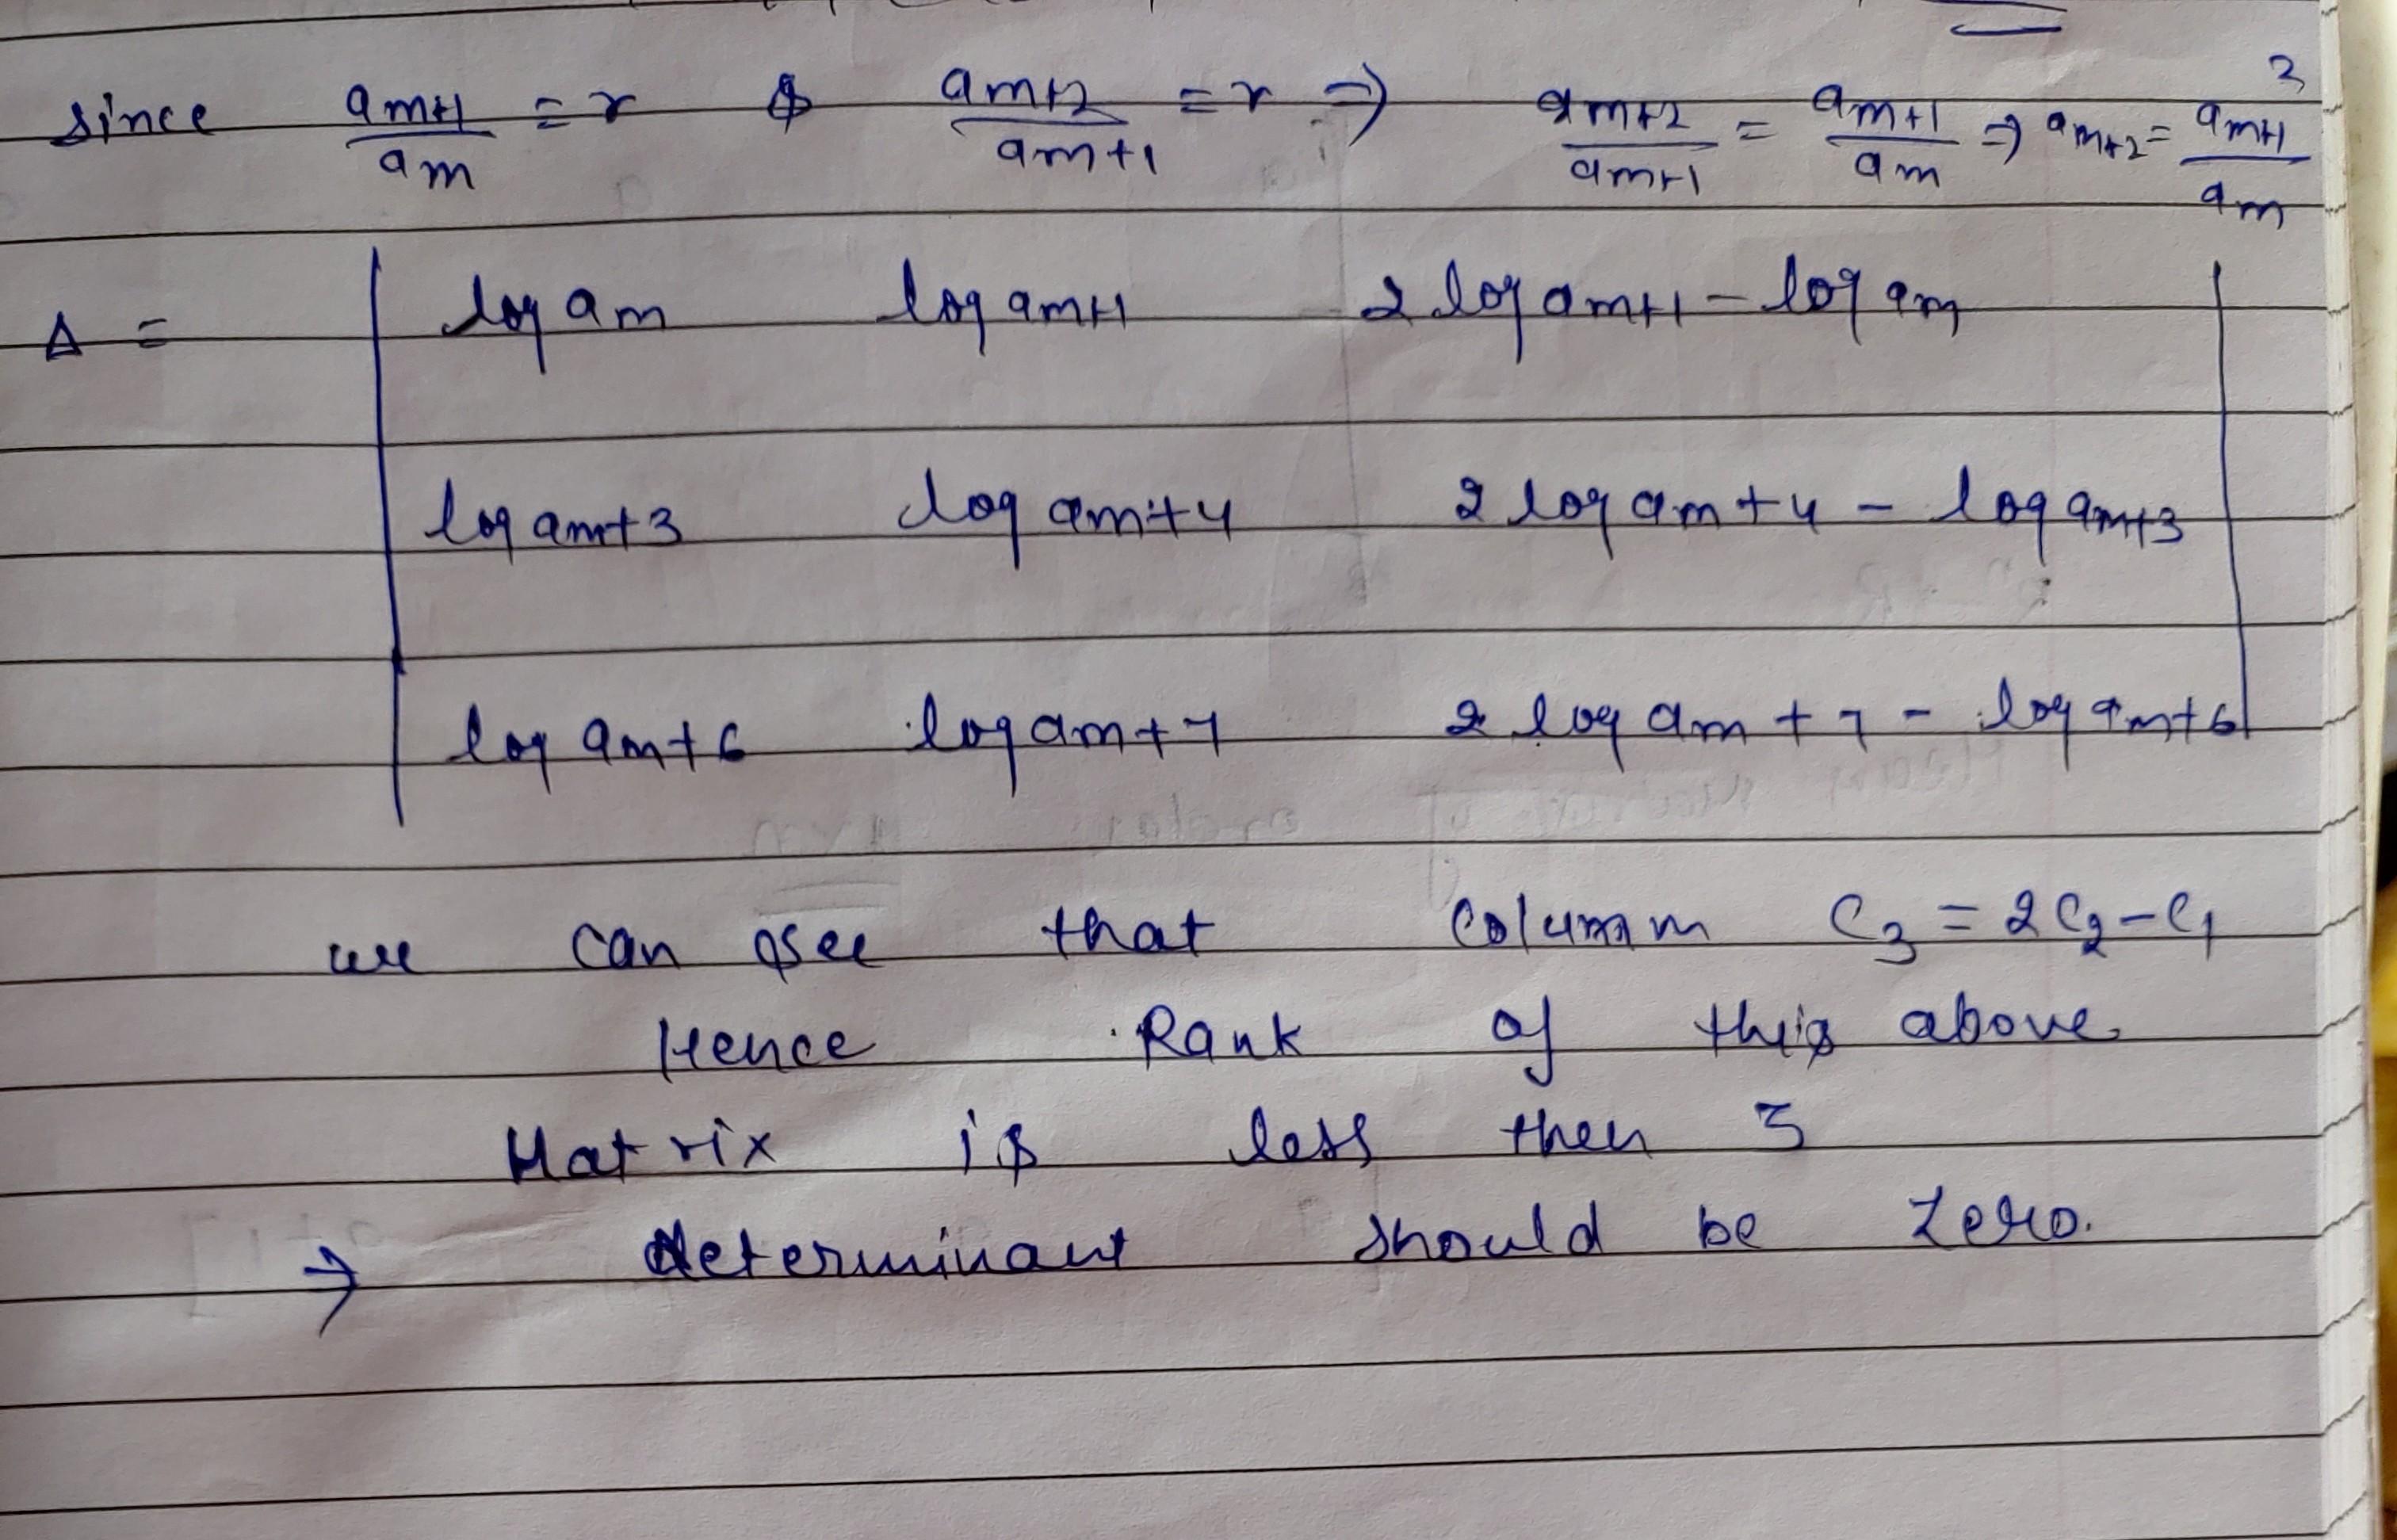 since a_{m+1}/a_m = r & a_{m+2}/a_{m+1} = r ⇒ a_{m+2}/a_{m+1} = a_{m+1}/a_m ⇒ a_{m+2} = a_{m+1}^2/a_m
Δ = | log a_m log a_{m+1} 2 log a_{m+1} - log a_m |
| log a_{m+3} log a_{m+4} 2 log a_{m+4} - log a_{m+3} |
| log a_{m+6} log a_{m+7} 2 log a_{m+7} - log a_{m+6} |
we can see that Column C_3 = 2C_2 - C_1
Hence Rank of this above
Matrix is less then 3
→ determinant should be zero.